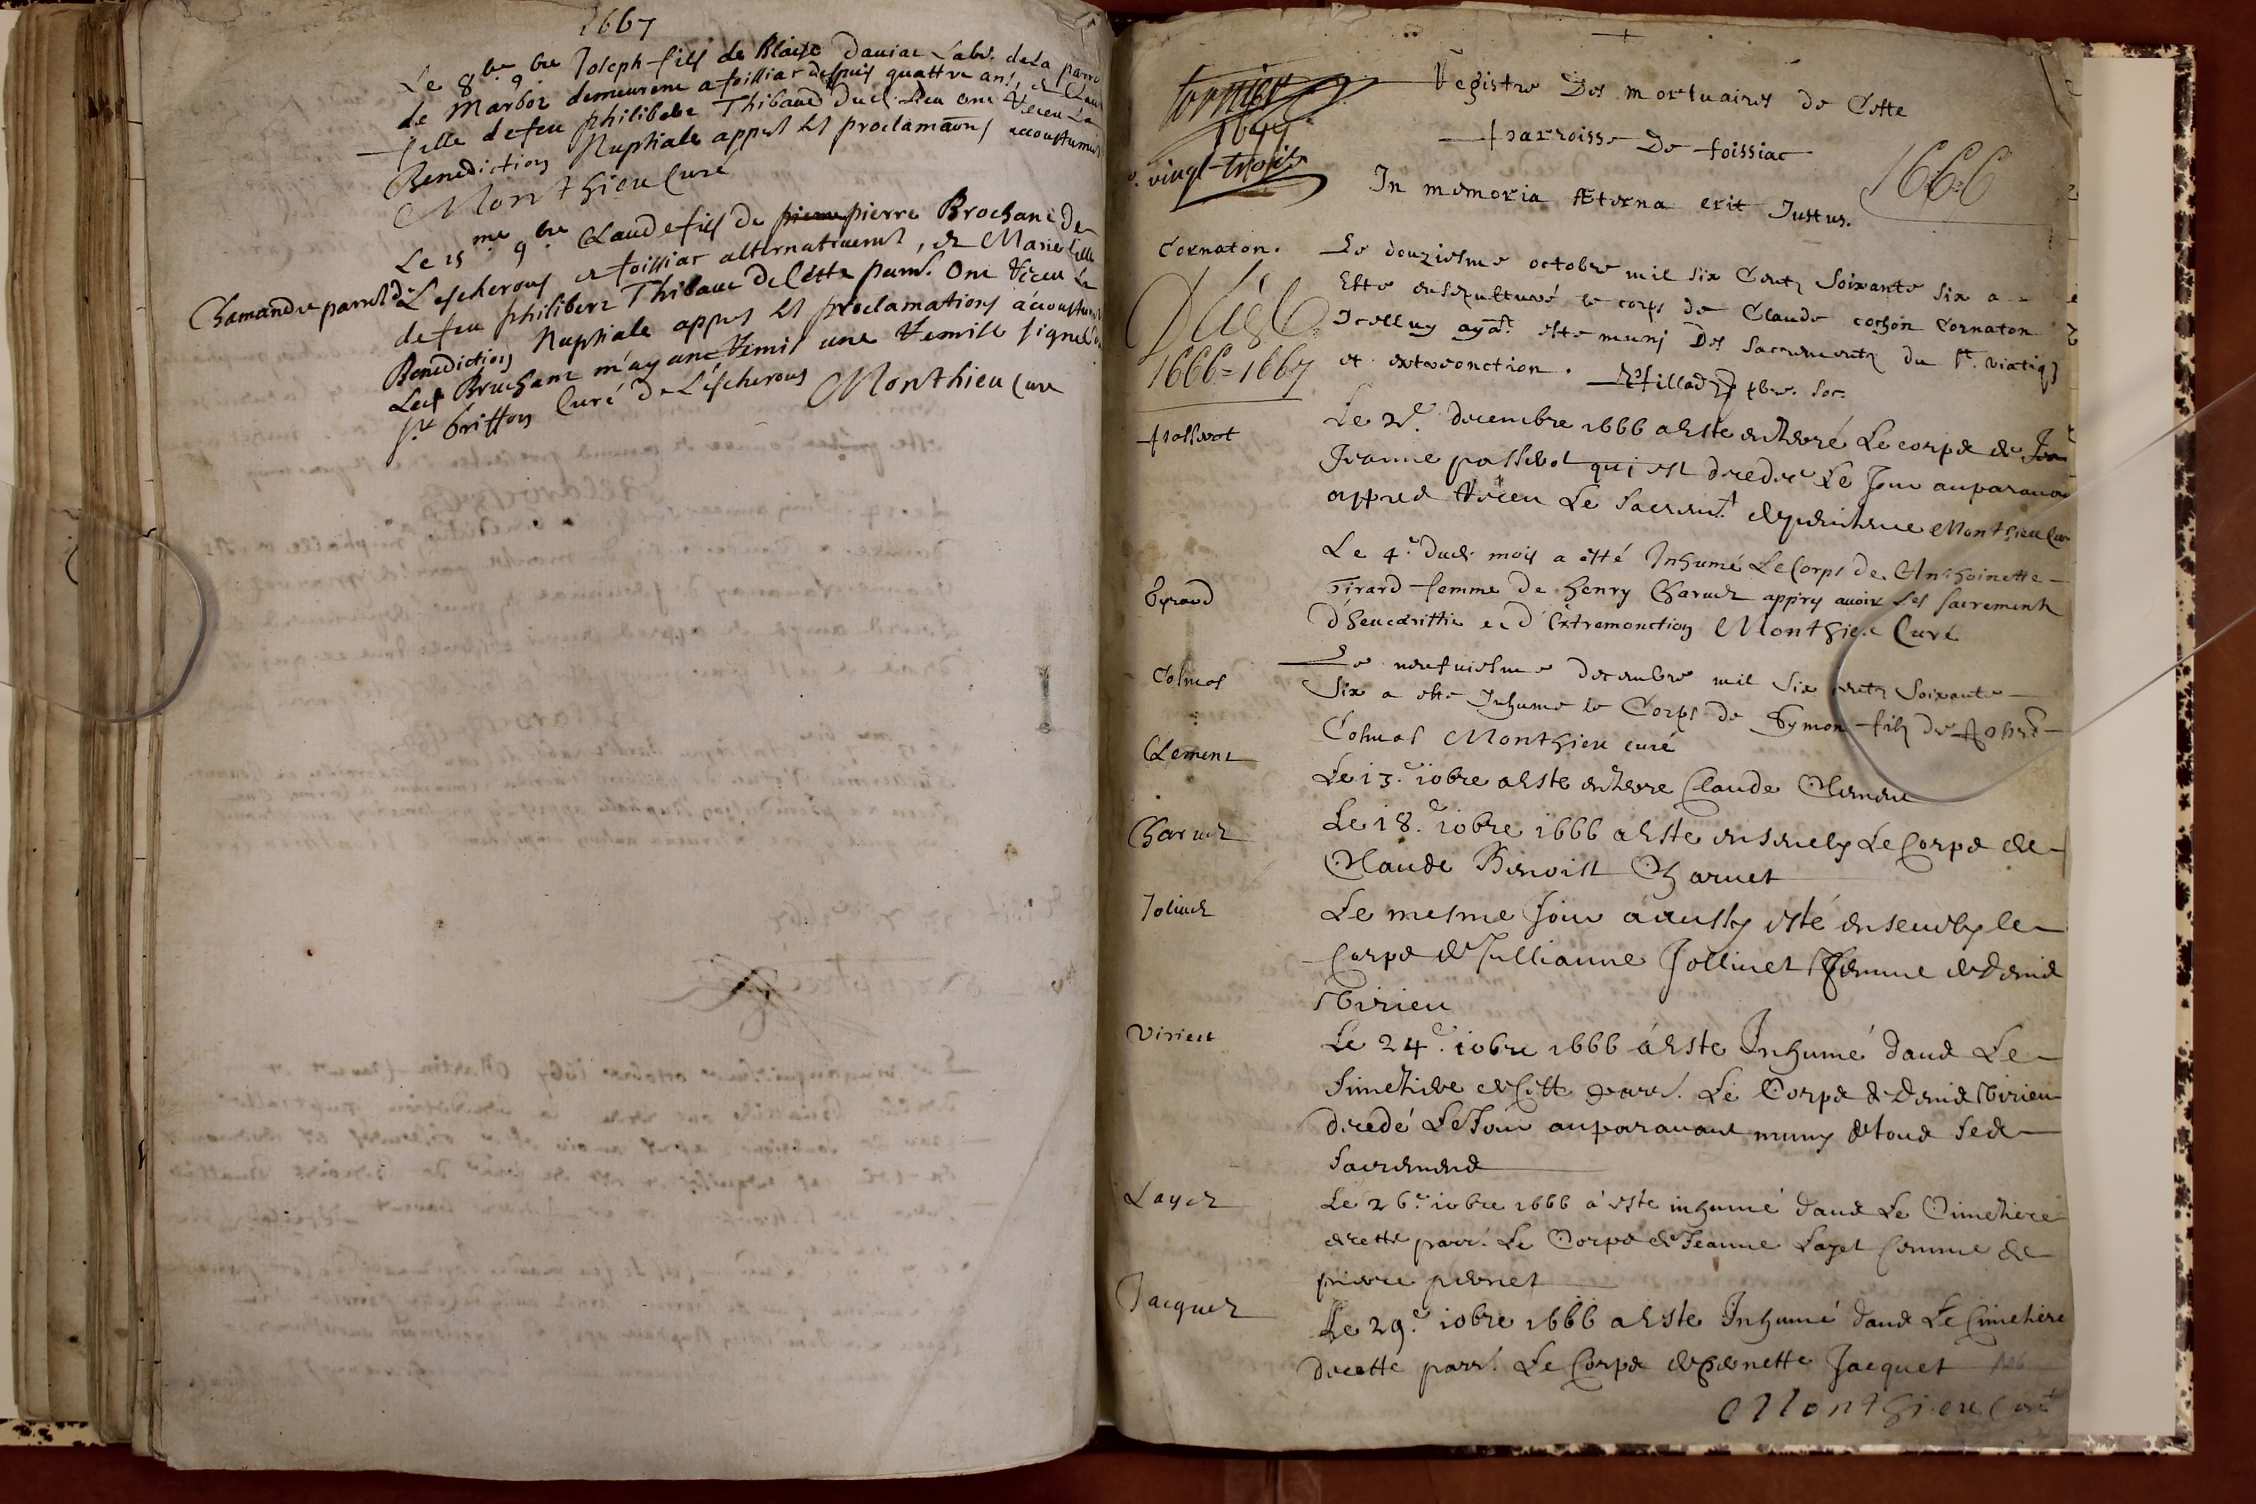 1667
Le 8me 9bre Joseph fils de Blaise Dauiat Labr. de La parr
de Marboz demeurent a foissiat despuis quattre ans, et Claud
fille de feu philibert Thibaud dud. Lieu ont Receu La
Benediction Nuptiale appres les proclamaons accoustumées
Monthieu Curé
Le 15me 9bre Claude fils de pierre pierre Brochand de
Chamandre parr. de Lescherous et foissiat alternatiuemt, et Marie fille
de feu philibert Thibaud de Cette parr. Ont Receu La
Benediction Nuptiale appres les proclamations accoustum
Led. Brochant m'ayant Remis une Remise signee du
sr. briffon Curé de Lescherous Monthieu Curé
Registre Des mortuaires de Cette
parroisse De foissiac
1666
vingt-trois
In memoria Æterna erit Justus.
Cornaton. Le douziesme octobre mil six Centz Soixante six a
Este ensepulturé le corps de Claude cochon Cornaton
Icelluy ayāt esté muni Des Sacrementz du St. viatiq
1666=1667
et extreonction.
passerot Le 2e. decembre 1666 a Este enterré Le corps de Jea
Jeanne passerot qui est decedee Le Jour auparauant
appres Receu Le Sacremt. de penitence Monthieu Cur
Le 4e. dud. mois a esté Inhumé Le Corps de Anthoinette
Tyrard Tirard femme de henry Charuet appres auoir Les sacrements
D'heucaristhie et d'Extremonction Monthieu Curé
Le neufuiesme decembre mil six centz Soixante
Colmet Six a esté Inhumé le Corps de Symon filz de
Colmet Monthieu curé
Clement Le 13.e 10bre a Este enterre Claude Clement
Charuet Le 18.e 10bre 1666 a Este enseuely Le Corps de
Claude Benoist Charuet
Joliuet Le mesme Jour a aussy esté enseuely le
Corps de Jullianne Jolliuet femme de Denis
Virieu
Virieu Le 24.e 10bre 1666 a Este Inhumé dans Le
Simetiere de Cette parr. Le Corps de Denis Virieu
decedé Le Jour auparauant muny de tous Ses
Sacremens
Layet Le 26.e 10bre 1666 a esté inhumé dans Le Cimetiere
de cette parr. Le Corps de Jeanne Layet femme de
pierre pernet
Jacquet Le 29.e 10bre 1666 a Este Inhumé dans Le Cimetiere
de cette parr. Le Corps de Benette Jacquet
Monthieu Curé